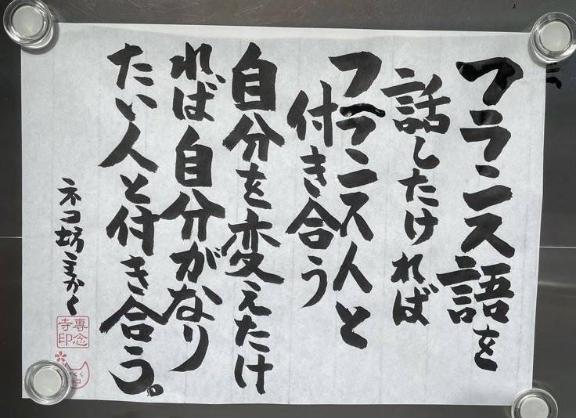 フランス語を
話したければ
フランス人と
付き合う
自分を変えたけ
れば自分がなり
たい人と付き合う。
ネコ坊まかく
専念
寺印